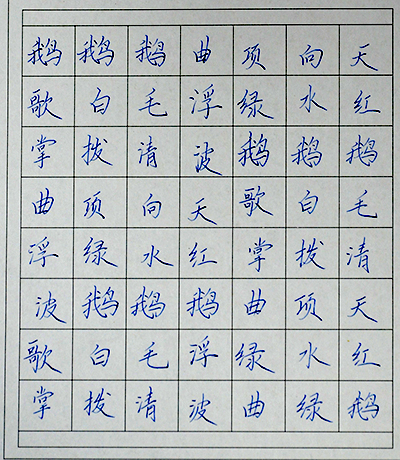 鹅鹅鹅曲项向天
歌白毛浮绿水红
掌拨清波鹅鹅鹅
曲项向天歌白毛
浮绿水红掌拨清
波鹅鹅鹅曲项天
歌白毛浮绿水红
掌拨清波曲绿鹅